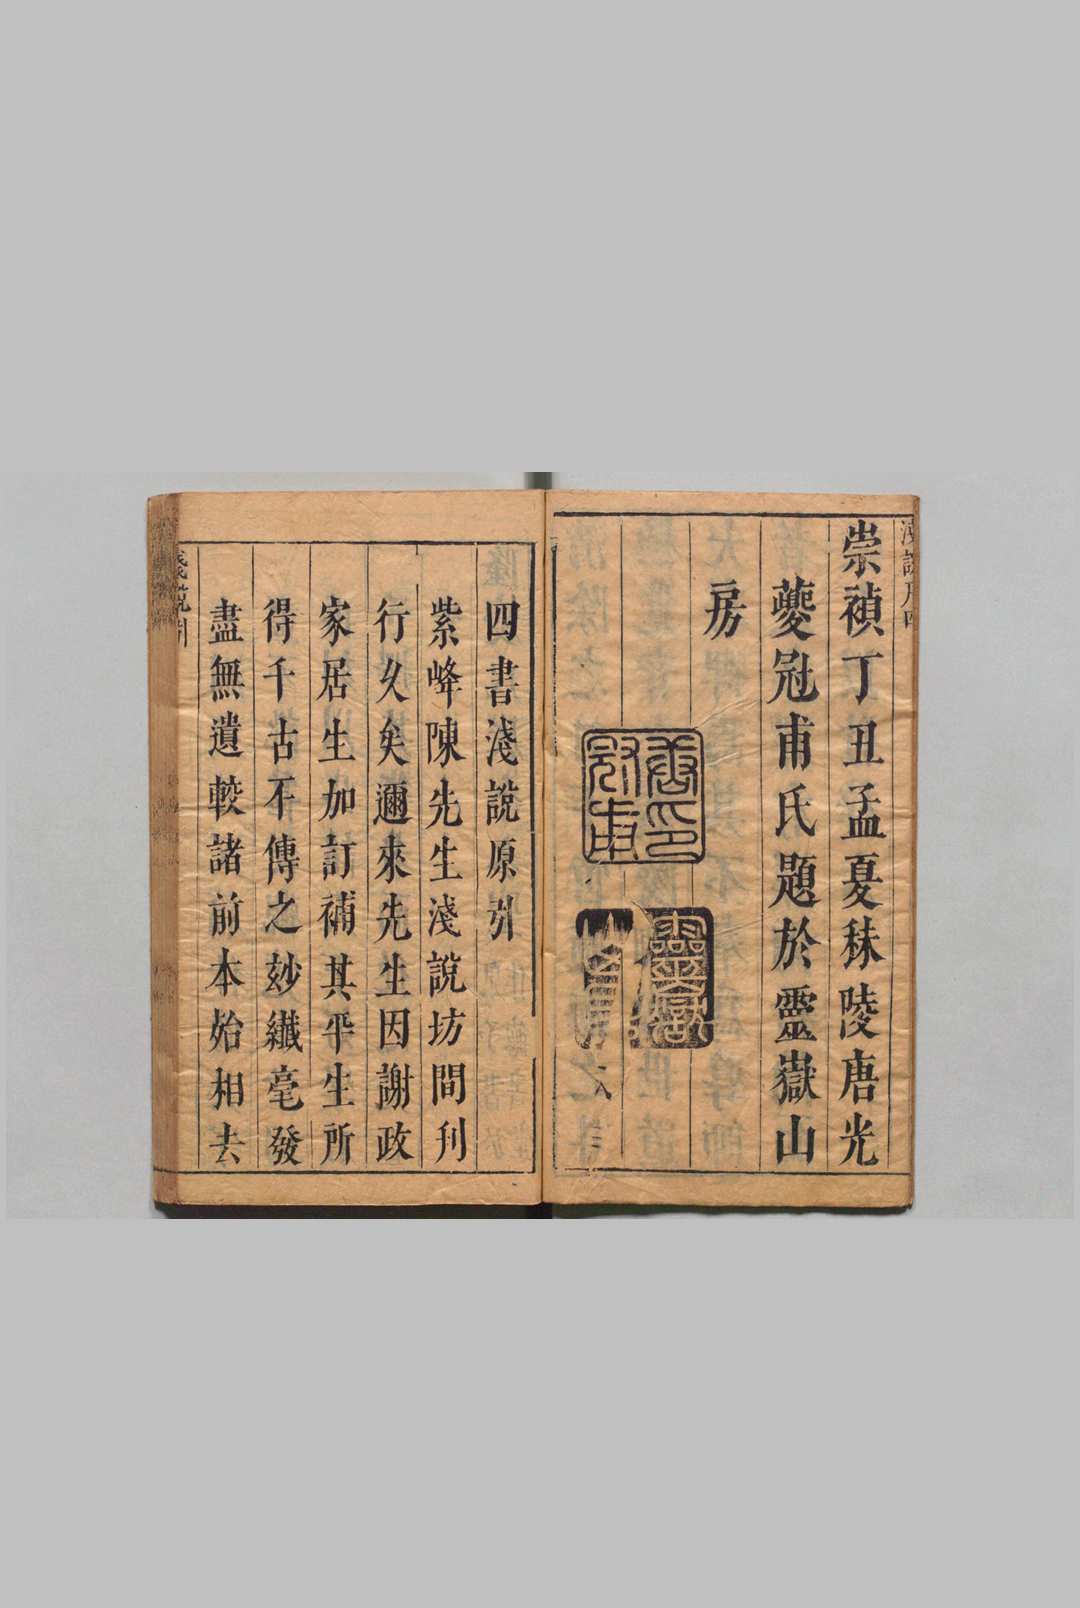 崇禎丁丑孟夏秣陵唐光
夔冠甫氏題於靈嶽山
房
四書淺說原引
紫峰陳先生淺說坊間刊
行久矣邇來先生因謝政
家居生加訂補其平生所
得千古不傳之玅纖毫發
盡無遺較諸前本始相去